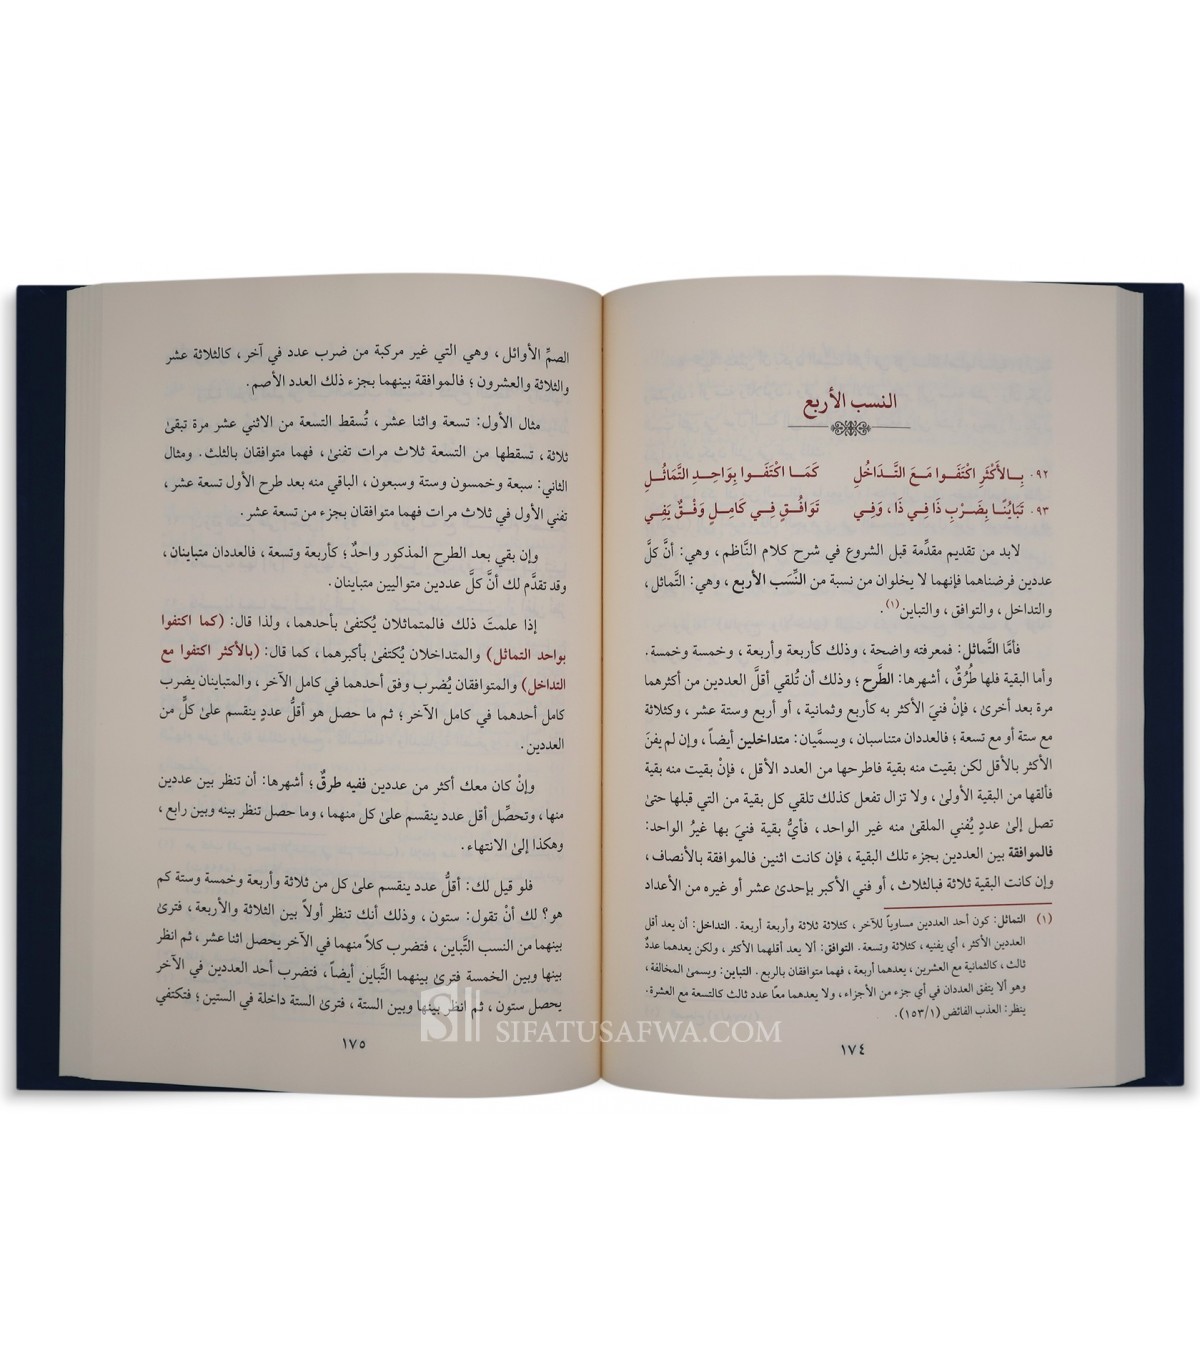 النسب الأربع
٩٢. بِـالأَكْثَرِ اكْتَفَـوا مَـعَ التَّـدَاخُلِ كَمَـا اكْتَفَـوا بِوَاحِـدِ التَّمَاثُـلِ
٩٣. تَبَايُنًـا بِضَـرْبِ ذَا فِـي ذَا، وَفِـي تَوَافُـقٍ فِـي كَامِـلٍ وَفْـقٌ يَفِـي
لابد من تقديم مقدِّمة قبل الشروع في شرح كلام النَّاظم، وهي: أنَّ كلَّ
عددين فرضناهما فإنهما لا يخلوان من نسبة من النِّسَب الأربع، وهي: التَّماثل،
والتداخل، والتوافق، والتباين(١).
فأمَّا التَّماثل: فمعرفته واضحة، وذلك كأربعة وأربعة، وخمسة وخمسة.
وأما البقية فلها طُرُقٌ، أشهرها: الطَّرح؛ وذلك أن تُلقي أقلَّ العددين من أكثرهما
مرة بعد أخرىٰ، فإنْ فنيَ الأكثر به كأربع وثمانية، أو أربع وستة عشر، وكثلاثة
مع ستة أو مع تسعة؛ فالعددان متناسبان، ويسمَّيان: متداخلين أيضاً، وإن لم يفنَ
الأكثر بالأقل لكن بقيت منه بقية فاطرحها من العدد الأقل، فإنْ بقيت منه بقية
فألقها من البقية الأولىٰ، ولا تزال تفعل كذلك تلقي كل بقية من التي قبلها حتىٰ
تصل إلىٰ عددٍ يُفني الملقىٰ منه غير الواحد، فأيُّ بقية فنيَ بها غيرُ الواحد:
فالموافقة بين العددين بجزء تلك البقية، فإن كانت اثنين فالموافقة بالأنصاف،
وإن كانت البقية ثلاثة فبالثلاث، أو فني الأكبر بإحدىٰ عشر أو غيره من الأعداد
(١) التماثل: كون أحد العددين مساوياً للآخر، كثلاثة ثلاثة وأربعة أربعة. التداخل: أن يعد أقل
العددين الأكثر، أي يفنيه، كثلاثة وتسعة. التوافق: ألا يعد أقلهما الأكثر، ولكن يعدهما عددٌ
ثالث، كالثمانية مع العشرين، يعدهما أربعة، فهما متوافقان بالربع. التباين: ويسمىٰ المخالفة،
وهو ألا يتفق العددان في أي جزء من الأجزاء، ولا يعدهما معًا عدد ثالث كالتسعة مع العشرة.
ينظر: العذب الفائض (١/١٥٣).
١٧٤
الصمِّ الأوائل، وهي التي غير مركبة من ضرب عدد في آخر، كالثلاثة عشر
والثلاثة والعشرون؛ فالموافقة بينهما بجزء ذلك العدد الأصم.
مثال الأول: تسعة واثنا عشر، تُسقط التسعة من الاثني عشر مرة تبقىٰ
ثلاثة، تسقطها من التسعة ثلاث مرات تفنىٰ، فهما متوافقان بالثلث. ومثال
الثاني: سبعة وخمسون وستة وسبعون، الباقي منه بعد طرح الأول تسعة عشر،
تفني الأول في ثلاث مرات فهما متوافقان بجزء من تسعة عشر.
وإن بقي بعد الطرح المذكور واحدٌ؛ كأربعة وتسعة، فالعددان متباينان،
وقد تقدَّم لك أنَّ كلَّ عددين متواليين متباينان.
إذا علمتَ ذلك فالمتماثلان يُكتفىٰ بأحدهما، ولذا قال: (كما اكتفوا
بواحد التماثل) والمتداخلان يُكتفىٰ بأكبرهما، كما قال: (بالأكثر اكتفوا مع
التداخل) والمتوافقان يُضرب وفق أحدهما في كامل الآخر، والمتباينان يضرب
كامل أحدهما في كامل الآخر؛ ثم ما حصل هو أقلُّ عددٍ ينقسم علىٰ كلٍّ من
العددين.
وإنْ كان معك أكثر من عددين ففيه طرقٌ؛ أشهرها: أن تنظر بين عددين
منها، وتحصِّل أقل عدد ينقسم علىٰ كل منهما، وما حصل تنظر بينه وبين رابع،
وهكذا إلىٰ الانتهاء.
فلو قيل لك: أقلُّ عدد ينقسم علىٰ كل من ثلاثة وأربعة وخمسة وستة كم
هو؟ لك أنْ تقول: ستون، وذلك أنك تنظر أولاً بين الثلاثة والأربعة، فترىٰ
بينهما من النسب التَّباين، فتضرب كلاً منهما في الآخر يحصل اثنا عشر، ثم انظر
بينها وبين الخمسة فترىٰ بينهما التَّباين أيضاً، فتضرب أحد العددين في الآخر
يحصل ستون، ثم انظر بينها وبين الستة، فترىٰ الستة داخلة في الستين؛ فتكتفي
١٧٥
SIFATUSAFWA.COM